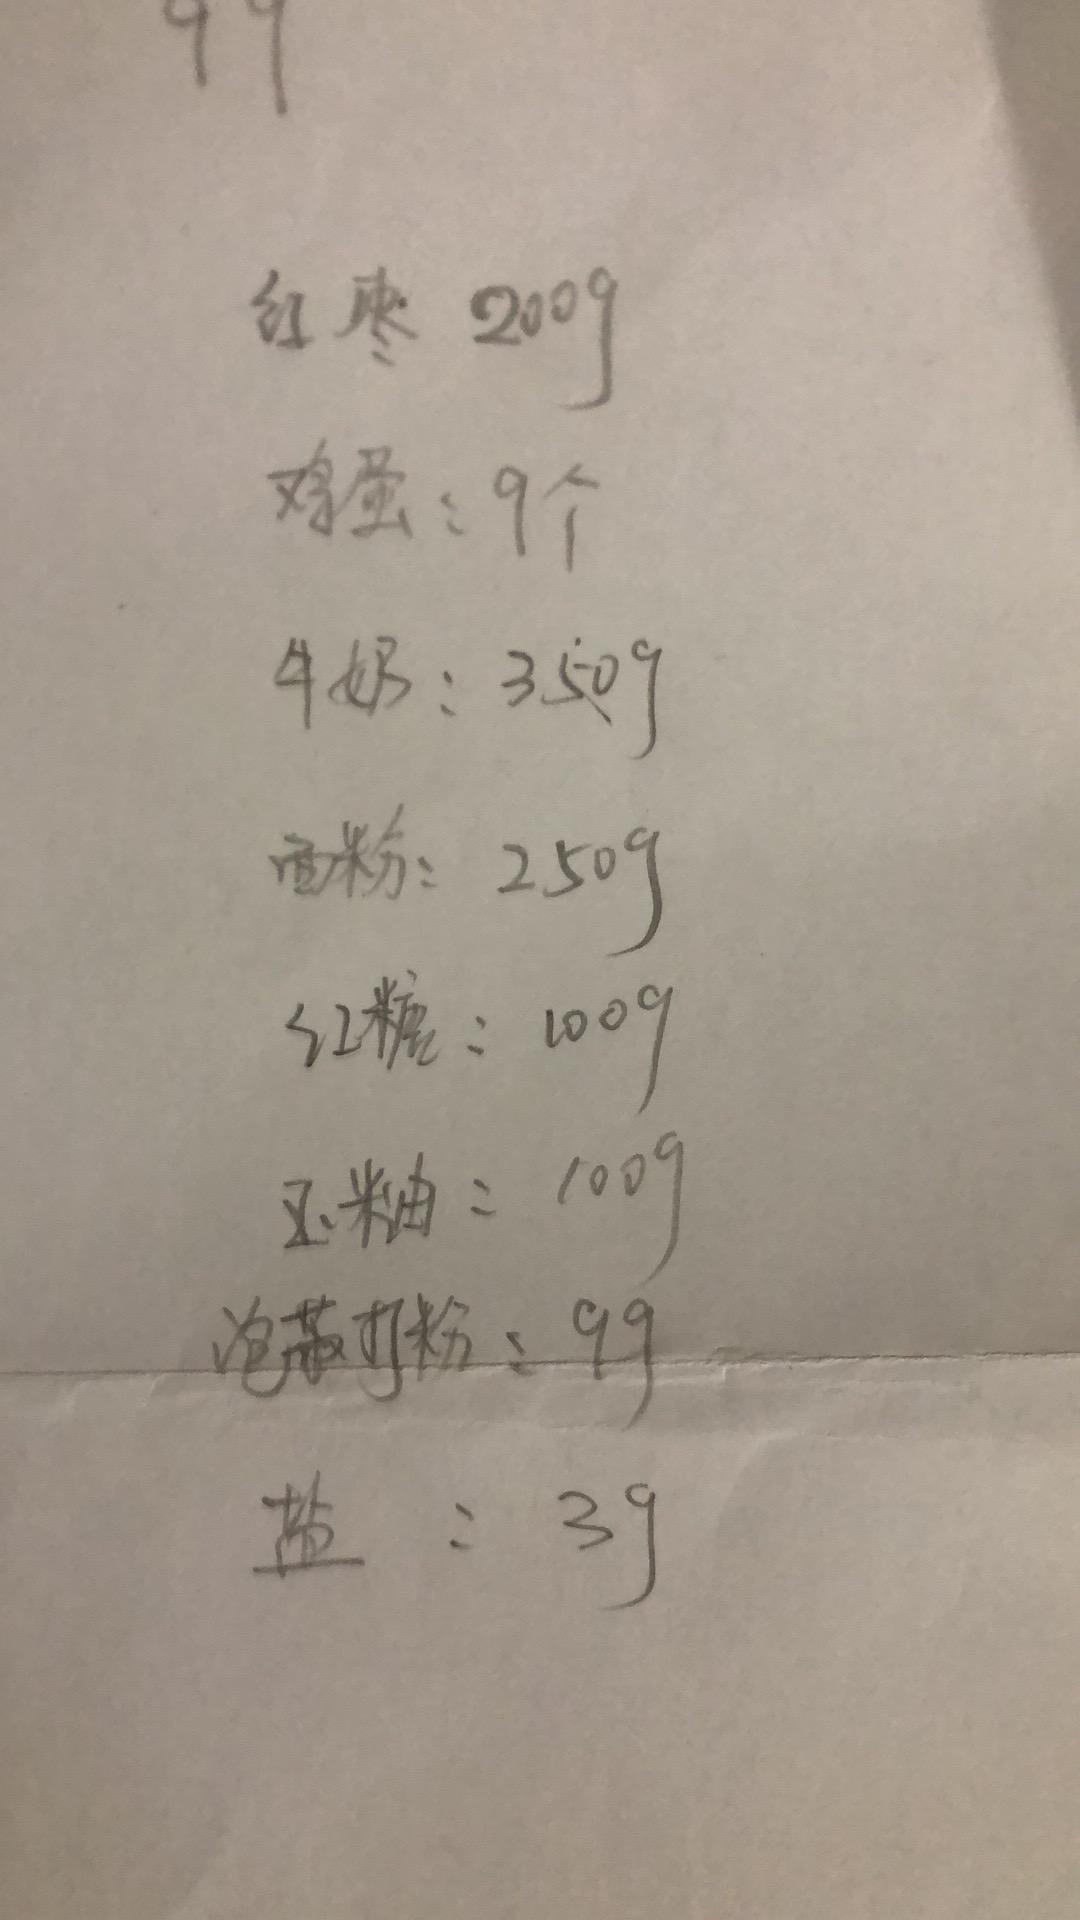 99
红枣 200g
鸡蛋：9个
牛奶：350g
面粉：250g
红糖：100g
玉米油：100g
泡蔴打粉：9g
盐 ：3g